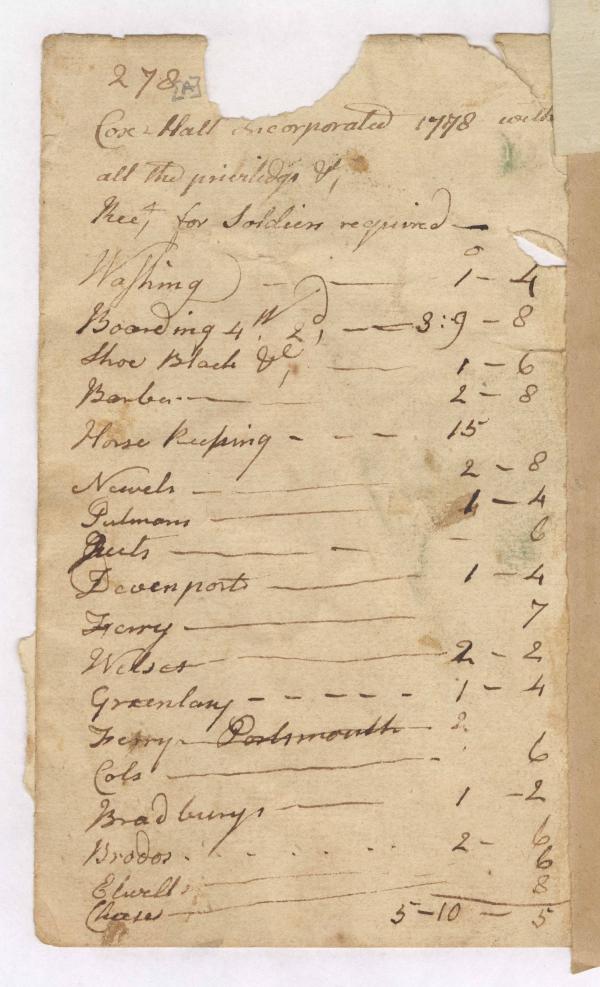 278 [A]
Coxe Hall incorporated 1778 with
all the priviledgs &c,
Rect, for Soldiers required —
Washing — — 1 – 4
Boarding 4 W 2d, — — 3:9 – 8
Shoe Black &c, — 1 – 6
Barber — — 2 – 8
Horse Keeping – – – 15
Newels — 2 – 8
Putmans — 1 – 4
— – — 6
Devenports — 1 – 4
Ferry — 7
— 2 – 2
Greenlay – – – – – 1 – 4
Ferry – Portsmouth – 2
Cols — 6
Bradburys — 1 – 2
Brodos . . . . . 2 – 6
Elwells — 6
Chases — 8
5 – 10 — 5